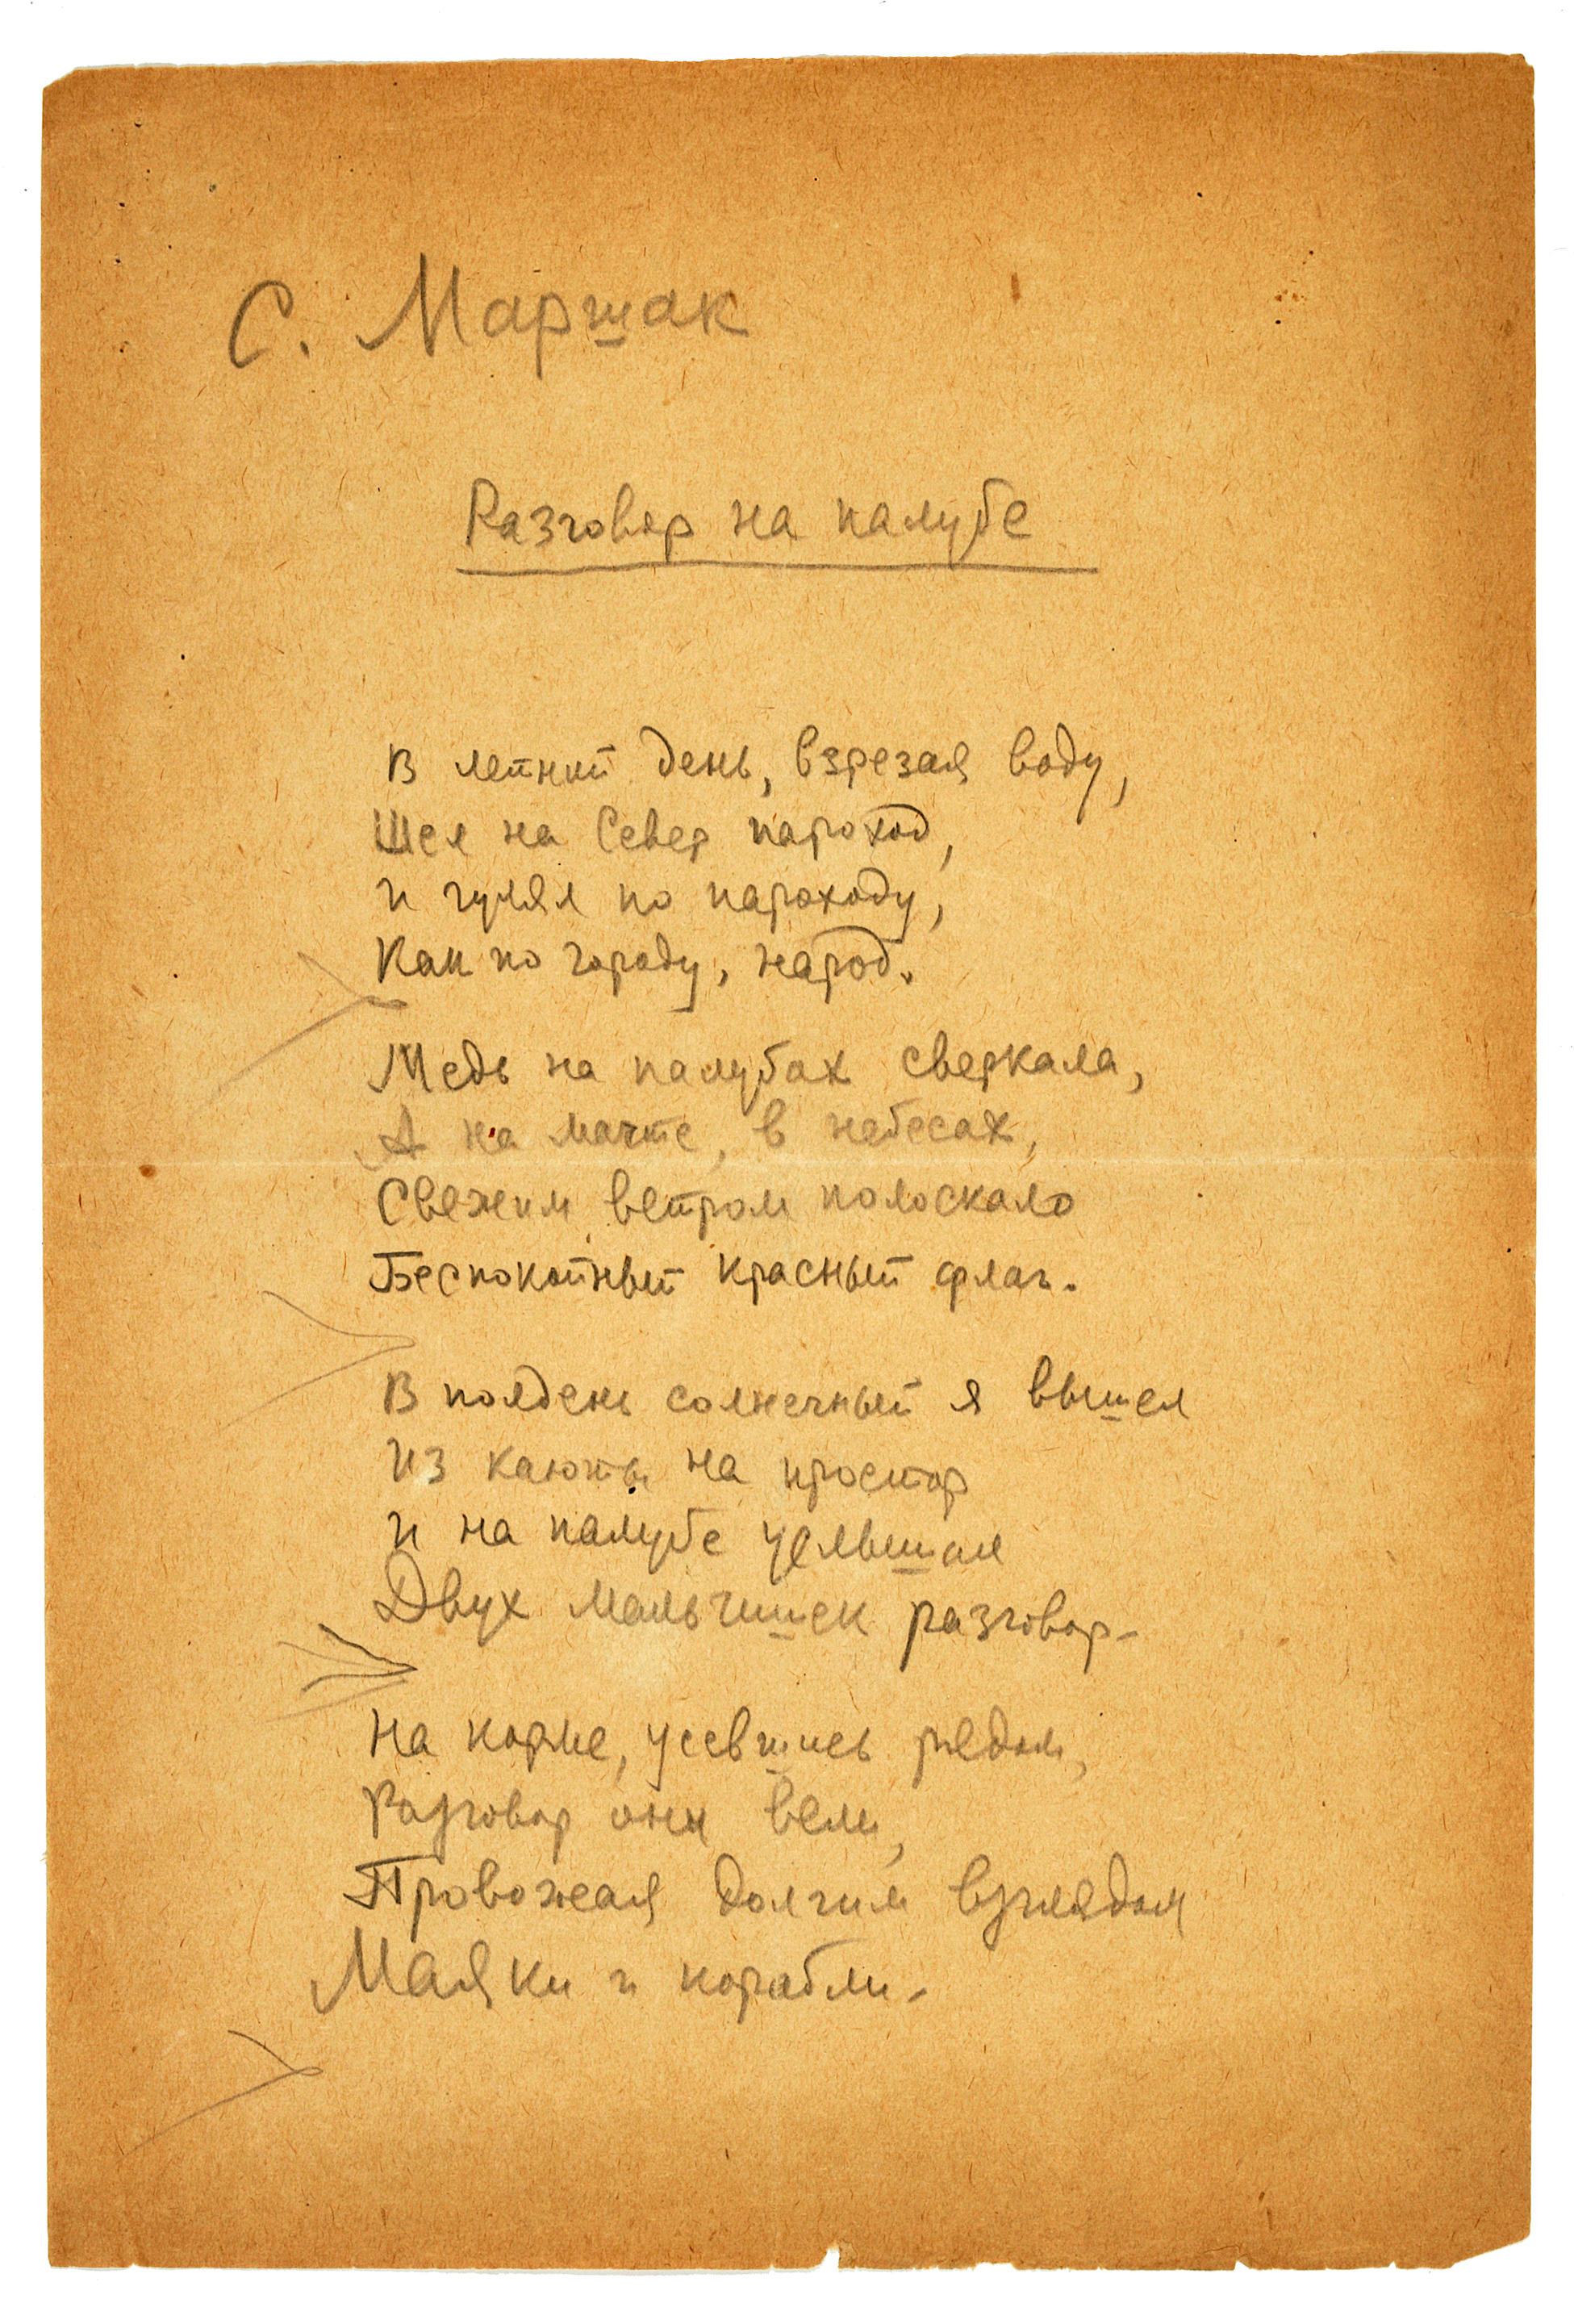 С. Маршак
Разговор на палубе
В летний день, взрезая воду,
Шел на Север пароход,
И гулял по пароходу,
Как по городу, народ.
Медь на палубах сверкала,
А на мачте, в небесах,
Свежим ветром полоскало
Беспокойный красный флаг.
В полдень солнечный я вышел
Из каюты на простор
И на палубе услышал
Двух мальчишек разговор.
На корме, усевшись рядом,
Разговор они вели,
Провожая долгим взглядом
Маяки и корабли.